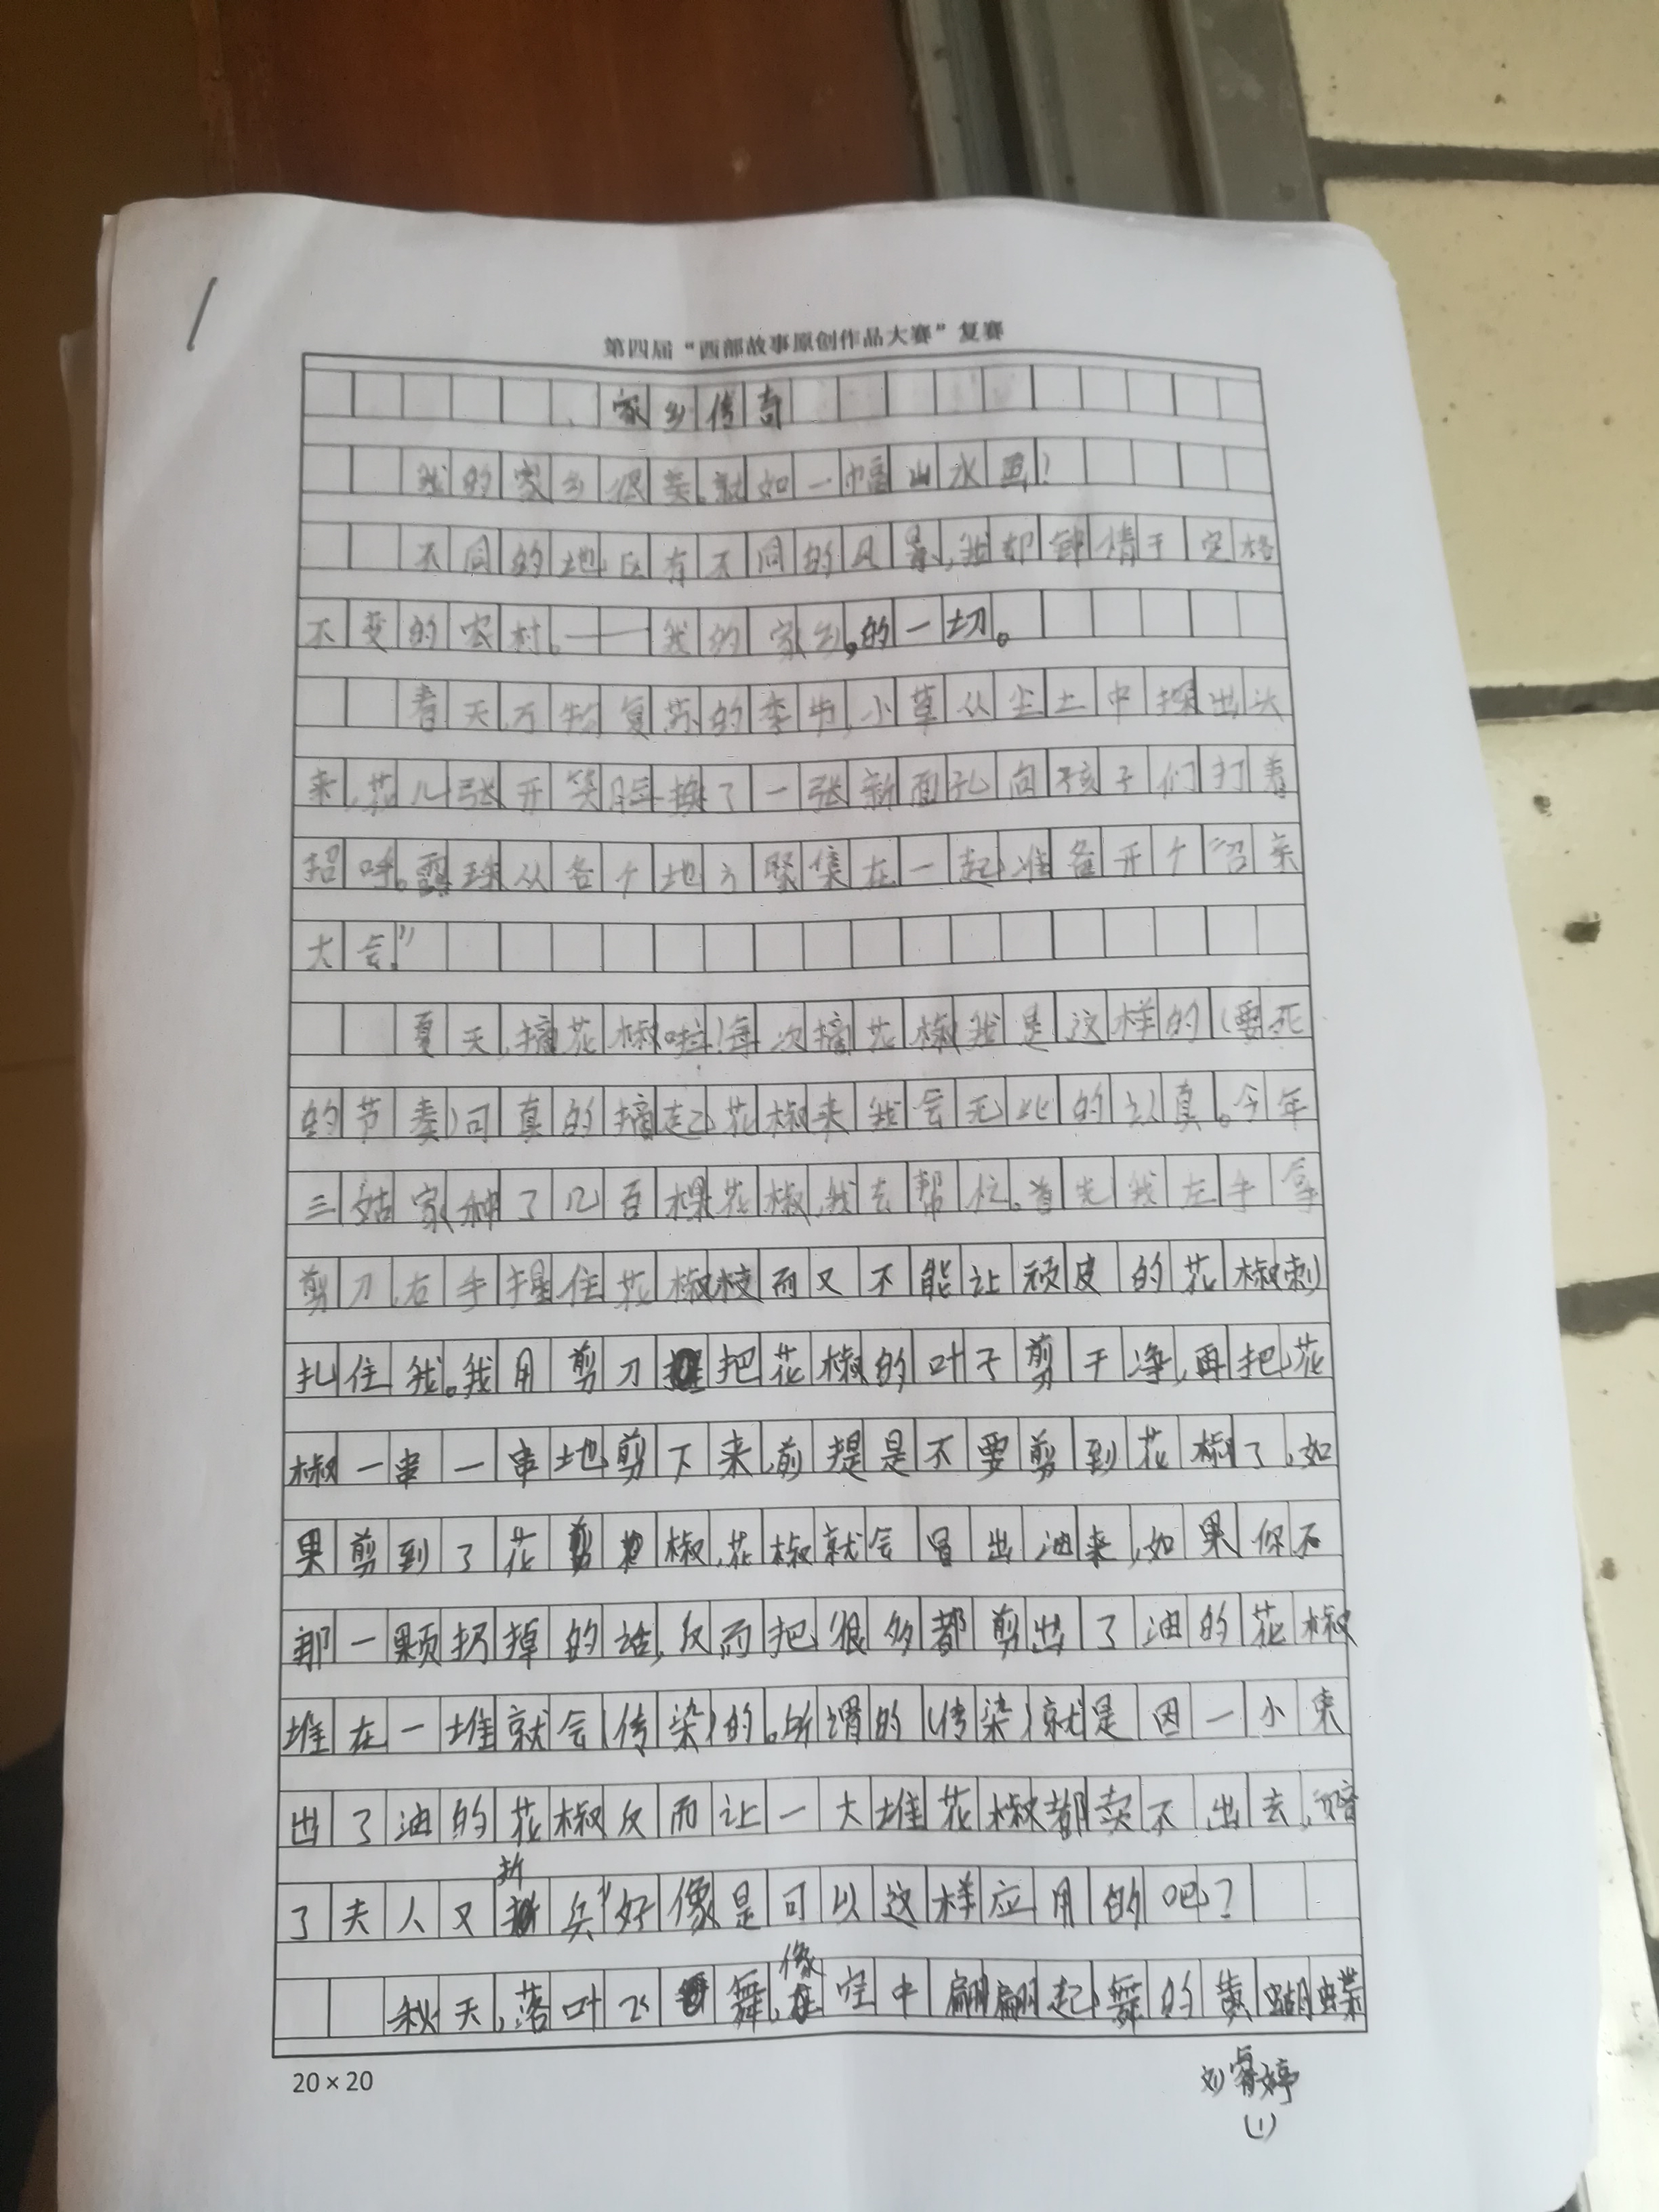 第四届“西部故事原创作品大赛”复赛
家乡传奇
我的家乡很美。就如一幅山水画！
不同的地区有不同的风景，我却钟情于定格
不变的农村。——我的家乡。的一切。
春天，万物复苏的季节，小草从尘土中探出头
来，花儿张开笑脸换了一张新面孔向孩子们打着
招呼。露珠从各个地方聚集在一起准备开个“招亲
大会。”
夏天，摘花椒啦！每次摘花椒我是这样的（要死
的节奏）可真的摘起花椒来我会无比的认真。今年
三姑家种了几百棵花椒，我去帮忙。首先我左手拿
剪刀，右手握住花椒枝而又不能让顽皮的花椒刺
扎住我。我用剪刀把花椒的叶子剪干净，再把花
椒一串一串地剪下来，前提是不要剪到花椒了，如
果剪到了花椒，花椒就会冒出油来，如果你不
那一颗扔掉的话，反而把很多都剪出了油的花椒
堆在一堆就会（传染）的。所谓的（传染）就是因一小束
出了油的花椒反而让一大堆花椒都卖不出去，“赔
了夫人又折兵”好像是可以这样应用的吧？
秋天，落叶飞舞，像空中翩翩起舞的黄蝴蝶
20×20
刘睿婷
(1)